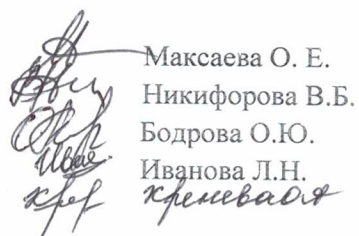 Максаева О. Е.
Никифорова В.Б.
Бодрова О.Ю.
Ива Иванова Л.Н.
Кре Креневаоя